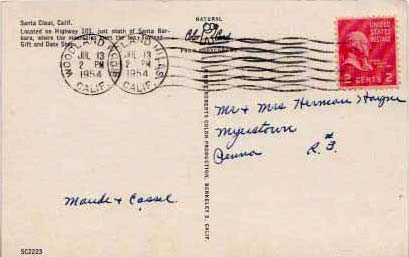 Santa Claus, Calif.
Located on Highway 101, just south of Santa Bar-
bara, where the mountains meet the sea.
Gift and Date Shop.
WOODLAND HILLS
JUL 13
2 PM
1954
CALIF.
JUL 13
2 PM
1954
CALIF.
NATURAL
Color Card
FROM
UNITED STATES
POSTAGE
2 CENTS 2
Mr & Mrs Herman Hayne
Myerstown
Penna R. #3.
Maude & Cassel.
MIKE ROBERTS COLOR PRODUCTION, BERKELEY 2, CALIF.
SC2223